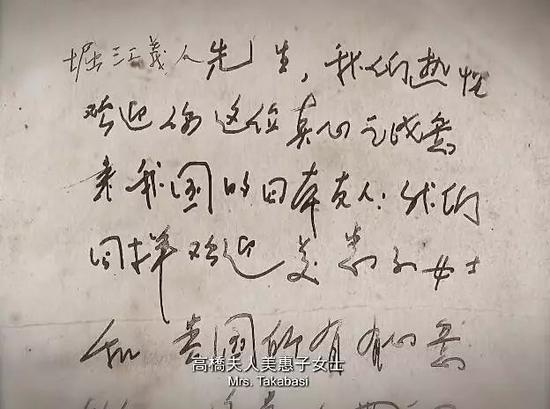 堀江義人先生，我们热忱
欢迎你这位真心之诚意
来我国的日本友人；我们
同样欢迎美惠子女士
和贵国所有有心意
高橋夫人美惠子女士
Mrs. Takabasi